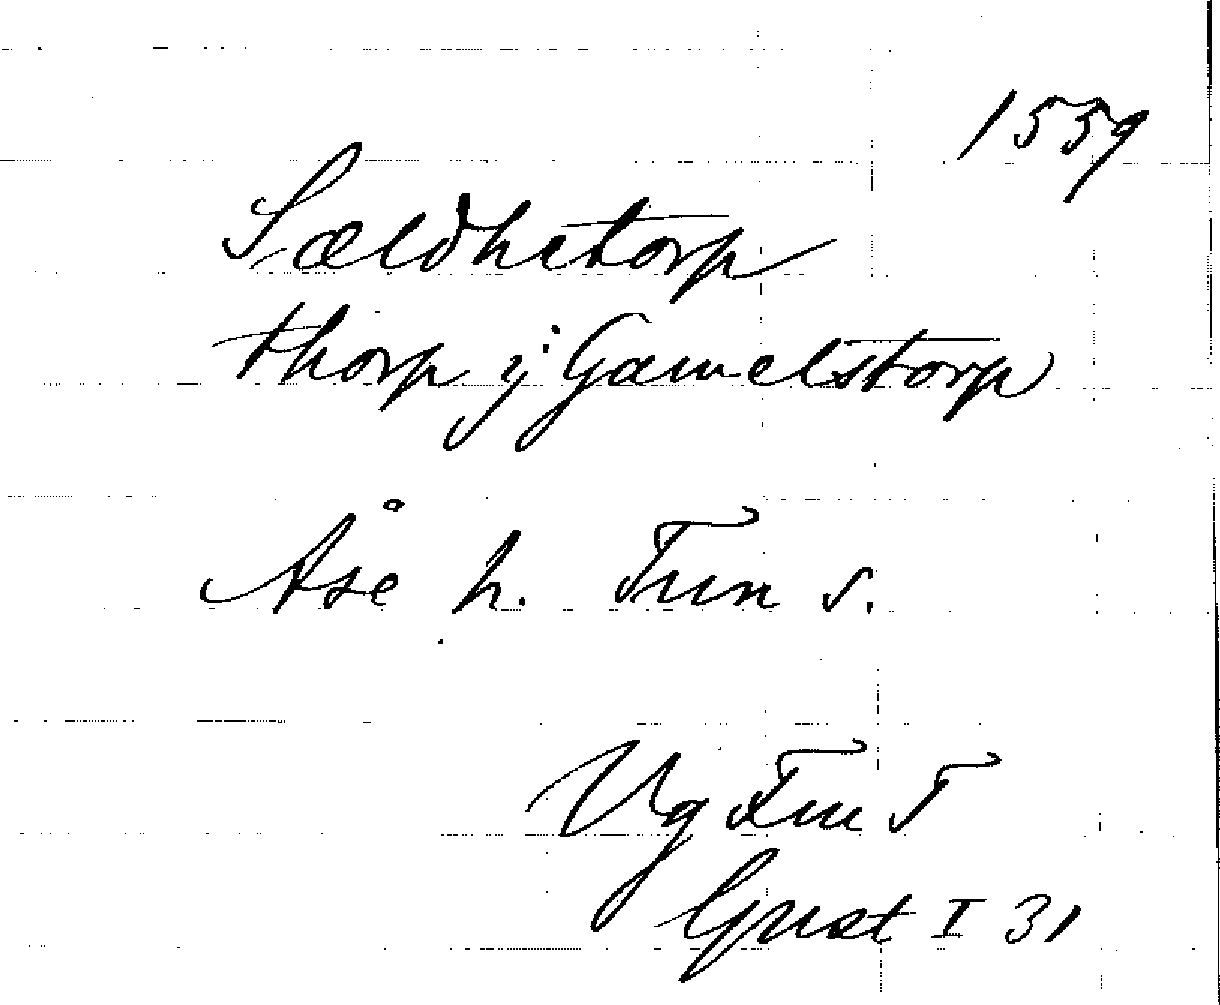 1559
Sældhetorp
thorp ÿ Gamelstorp
Åse h. Tun s.
Vg Tun T
Gust I 31